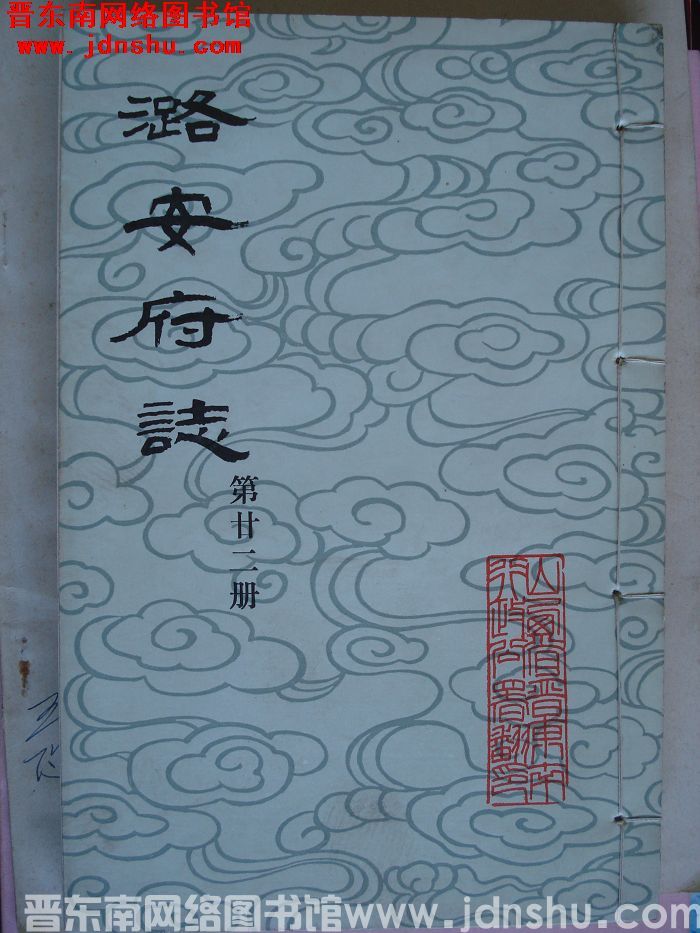 晋东南网络图书馆
www.jdnshu.com
潞安府誌
第廿二册
山西省晋东南
行政公署翻印
晋东南网络图书馆www.jdnshu.com